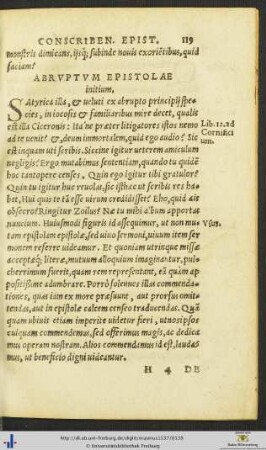 CONSCRIBEN. EPIST. 119
monstris dimicans, ijsq; subinde nouis exoriētibus, quid
faciam?
ABRVPTVM EPISTOLAE
initium.
SAtyrica illa, & ueluti ex abrupto principij spe-
cies, in iocosis & familiaribus mire decet, qualis
est illa Ciceronis: Ita'ne præter litigatores istos nemo
ad te uenit? &, deum immortalem, quid ego audio? Sic
est inquam uti scribis. Siccine igitur ueterem amiculum
negligis? Ergo mutabimus sententiam, quando tu quidē
hoc tantopere censes. Quin ego igitur tibi gratulor?
Quin tu igitur huc reuolas, si isthæc ut scribis res ha-
bet, Hui quis te tā esse uirum credidisset? Eho, quid ais
obsecro? Ringitur Zoilus? Næ tu mihi album apportas
nuncium. Huiusmodi figuris id assequimur, ut non mu-
tam epistolam epistolæ, sed uiuo sermoni, uiuum item ser
monem referre uideamur. Et quoniam utrinque missæ
acceptæq; literæ, mutuum alloquium imaginantur, pul-
cherrimum fuerit, quam rem repræsentant, eā quàm ap
positissime adumbrare. Porrò solennes illas commenda-
tiones, quas iam ex more præfamt, aut prorsus omit-
tendas, aut in epistolæ calcem censeo traducendas. Quā
quam ubiuit etiam imperite uidetur fieri, ut nosipsos
cuiquam commendemus, sed offerimus magis, ac dedica
mus operam nostram. Alios commendamus id est, lauda
mus, ut beneficio digni uideantur.
H 4 DE
Lib. 12. ad
Cornifici
um.
Vsus.
http://dl.ub.uni-freiburg.de/diglit/erasmus1537/0119
© Universitätsbibliothek Freiburg
Baden-Württemberg